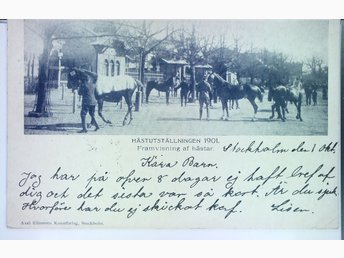 HÄSTUTSTÄLLNINGEN 1901.
Framvisning af hästar.
Stockholm den 1 Okt.
Kära Barn.
Jag har på öfver 8 dagar ej haft bref af
dig och det sista var så kort. Är du sjuk
Hvarföre har du ej skickat kof. Lisen.
Axel Eliassons Konstförlag, Stockholm.